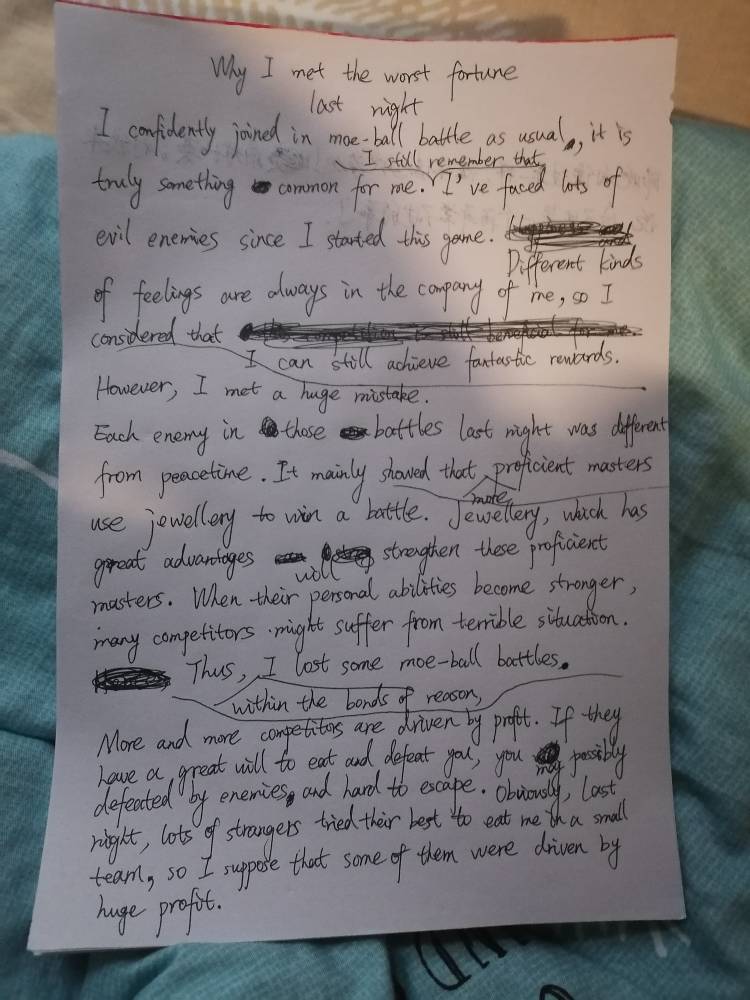 Why I met the worst fortune
last night
I confidently joined in moe-ball battle as usual, it is
I still remember that
truly something common for me. I've faced lots of
evil enemies since I started this game.
Different kinds
of feelings are always in the company of me, so I
considered that
I can still achieve fantastic rewards.
However, I met a huge mistake.
Each enemy in those battles last night was different
from peacetime. It mainly showed that proficient masters
more
use jewellery to win a battle. Jewellery, which has
great advantages strengthen these proficient
will
masters. When their personal abilities become stronger,
many competitors might suffer from terrible situation.
Thus, I lost some moe-ball battles.
within the bonds of reason,
More and more competitors are driven by profit. If they
have a great will to eat and defeat you, you possibly
may
defeated by enemies, and hard to escape. Obviously, last
night, lots of strangers tried their best to eat me in a small
team, so I suppose that some of them were driven by
huge profit.